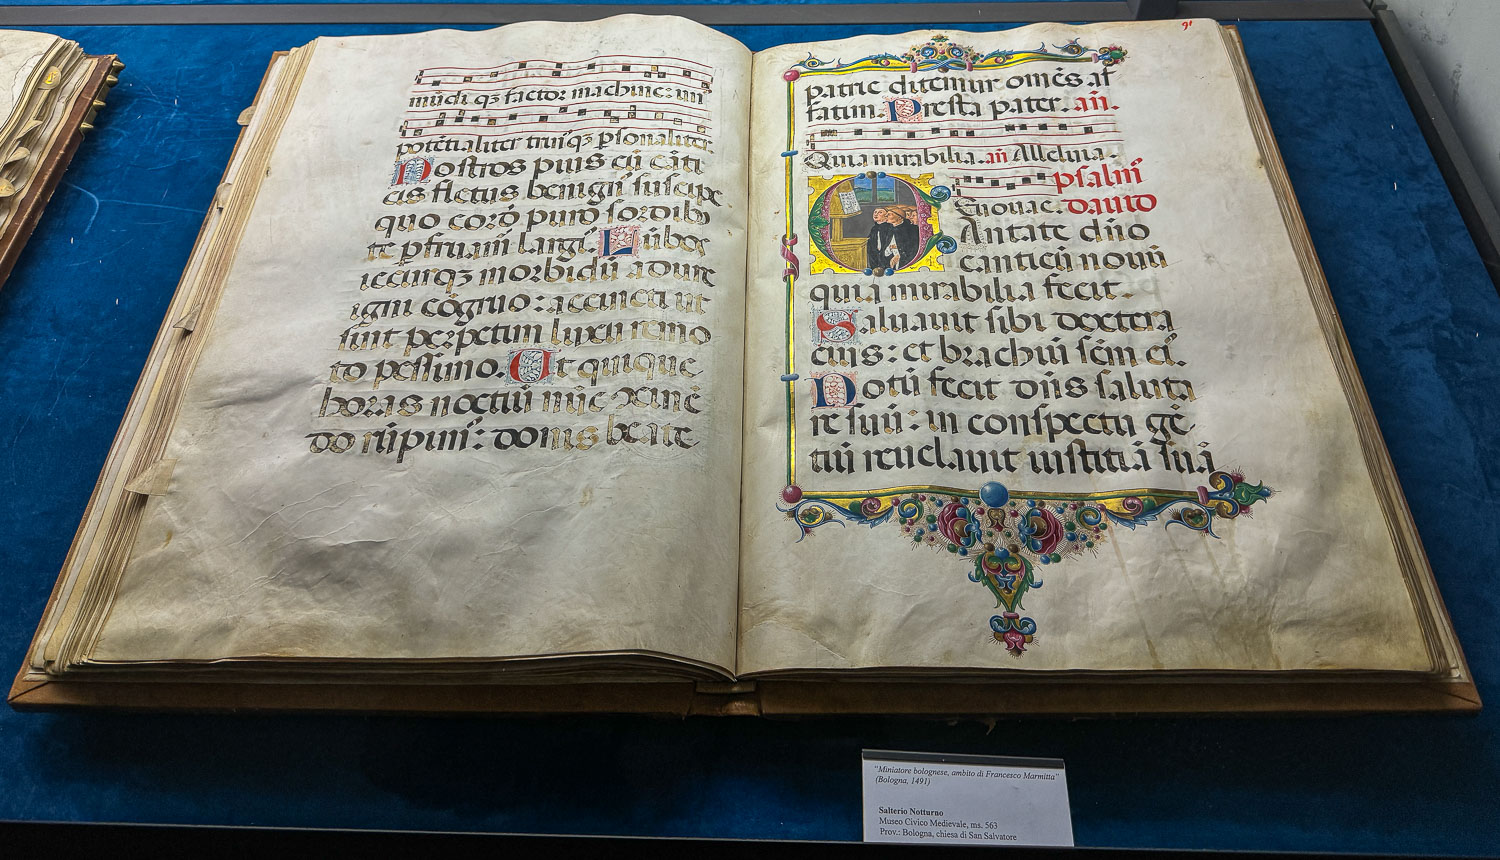 mūdi qз factor machine: un
potētialiter trinqз psonaliter.
Nostros piis cū cāti
cis fletus benigne suscipe
quo corde puro sordibus
te pfruam largi. Lūbos
iecurqз morbidū adure
igni cōgruo: accincti ut
sint perpetim luxu remo
to pessimo. Ut quique
horas noctiū nūc
do rūpim: donis beate
91
patrie ditemur omēs af
fatim. Presta pater. añ.
Quia mirabilia. añ Alleluia.
psalm
Euouae. dauid
Antate dño
canticū nouū
quia mirabilia fecit.
Saluauit sibi dextera
eius: et brachiū scm ei.
Notū fecit dñs saluta
re suū: in conspectu gē
tiū reuelauit iustitiā suā
"Miniatore bolognese, ambito di Francesco Marmitta"
(Bologna, 1491)
Salterio Notturno
Museo Civico Medievale, ms. 563
Prov.: Bologna, chiesa di San Salvatore